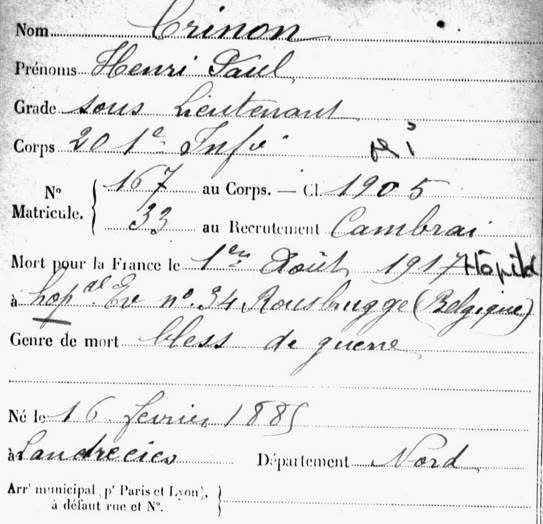 Nom Crinon
Prénoms Henri Paul
Grade sous Lieutenant
Corps 201e Infie RI
No 167 au Corps. — Cl. 1905
Matricule. 33 au Recrutement Cambrai
Mort pour la France le 1er Août 1917 Hôpital
à hopal Ev no. 34 Rousbrugge (Belgique)
Genre de mort bless de guerre
Né le 16 février 1885
à Landrecies Département Nord
Arrt municipal (pr Paris et Lyon),
à défaut rue et No.